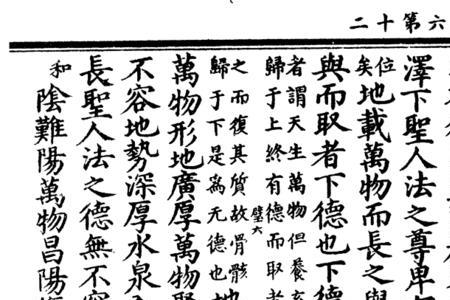 六第十二
澤下聖人法之尊卑
位
矣
地載萬物而長之與
與而取者下德也下德
者謂天生萬物但養
歸于上終有德而取者
璧六
之而復其質故骨骸
歸于下是爲无德也
地
萬物形地廣厚萬物
不容地勢深厚水泉
長聖人法之德無不容
和
陰難陽萬物昌陽